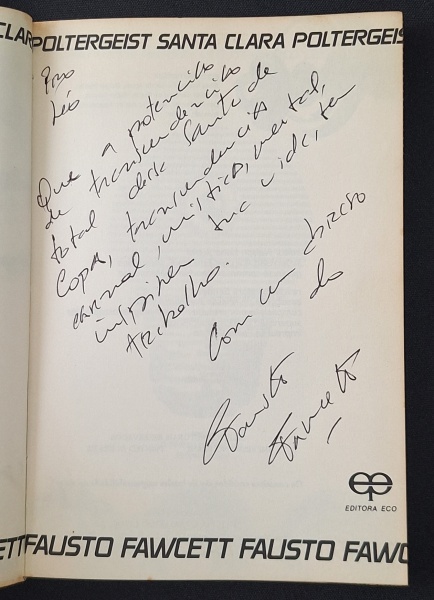 CLAR POLTERGEIST SANTA CLARA POLTERGEIS
Pro
Léo
Que a potencia
de transcendencia
total desta Santa de
Copa, transcendencia
carnal, mística, mental,
inspirem tua vida, teu
trabalho.
Com um abraço
do
Fausto
Fawcett
ep
EDITORA ECO
ETT FAUSTO FAWCETT FAUSTO FAWC